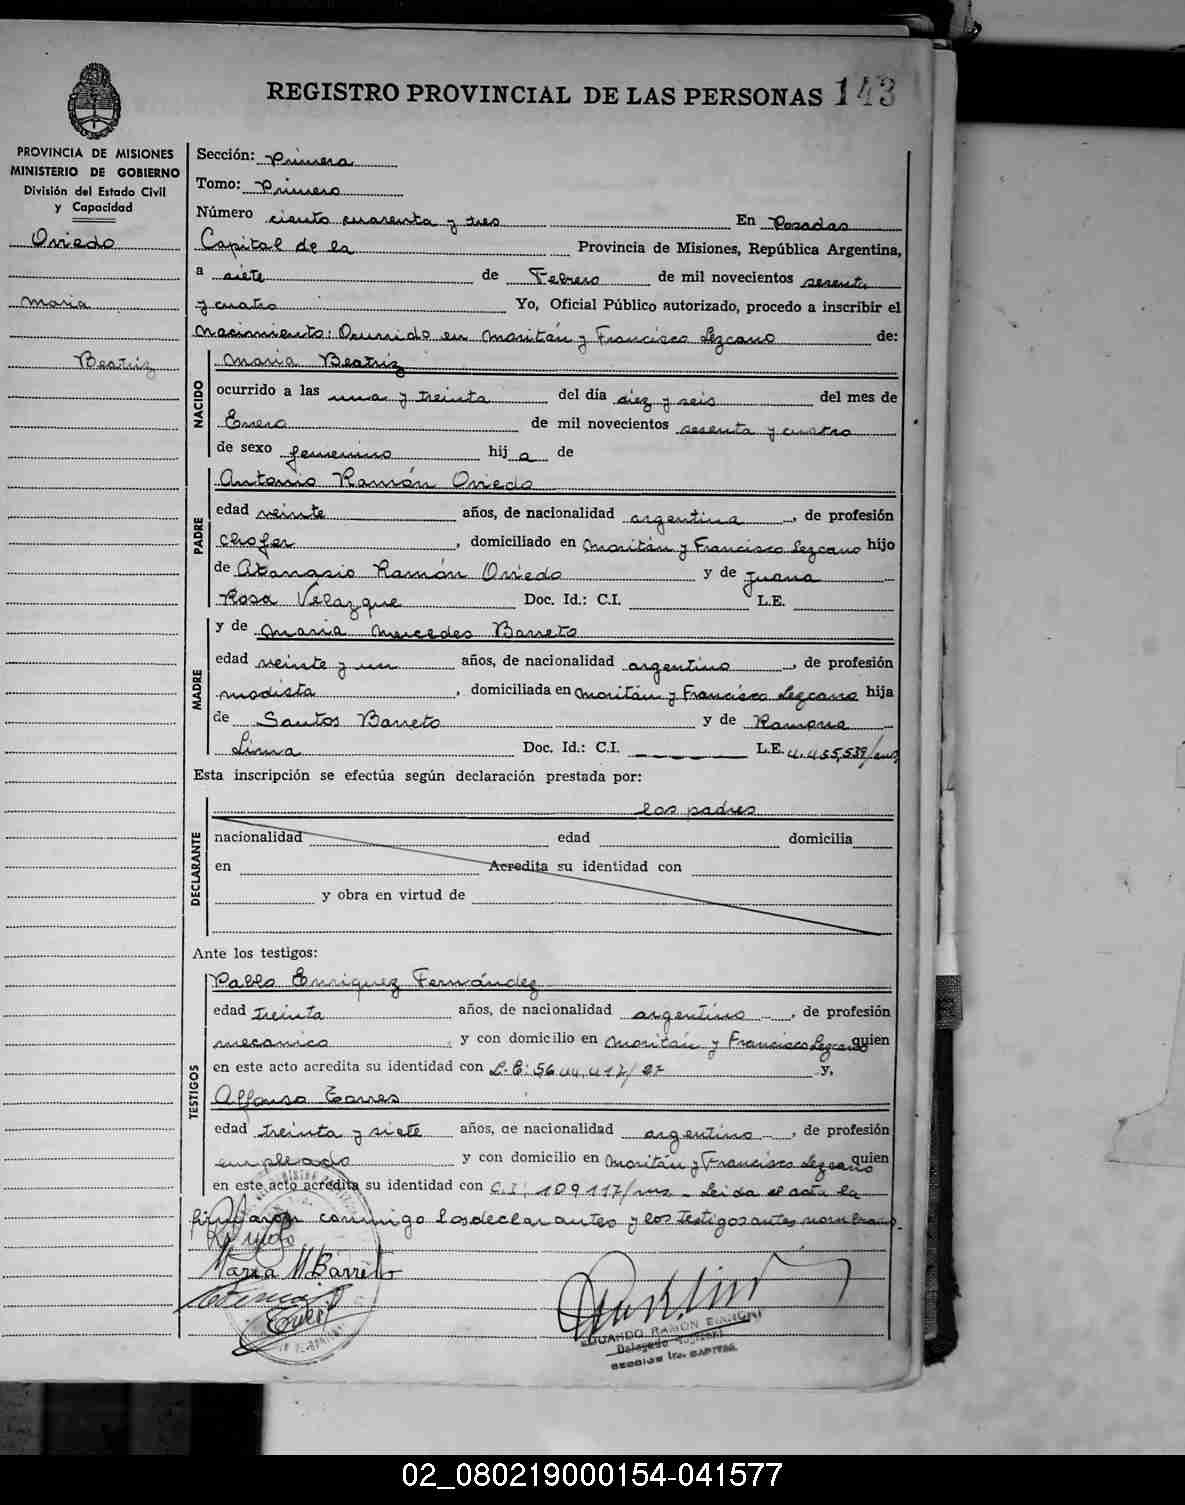 REGISTRO PROVINCIAL DE LAS PERSONAS 143
PROVINCIA DE MISIONES
MINISTERIO DE GOBIERNO
División del Estado Civil
y Capacidad
Oviedo
Maria
Beatriz
Sección: Primera
Tomo: Primero
Número ciento cuarenta y tres En Posadas
Capital de la Provincia de Misiones, República Argentina,
a siete de Febrero de mil novecientos sesenta
y cuatro Yo, Oficial Público autorizado, procedo a inscribir el
Nacimiento: Ocurrido en Moritán y Francisco Lezcano de:
NACIDO
Maria Beatriz
ocurrido a las una y treinta del día diez y seis del mes de
Enero de mil novecientos sesenta y cuatro
de sexo femenino hij a de
PADRE
Antonio Ramón Oviedo
edad veinte años, de nacionalidad argentina, de profesión
chofer, domiciliado en Moritán y Francisco Lezcano hijo
de Atanasio Ramón Oviedo y de Juana
Rosa Velazque Doc. Id.: C.I. L.E.
MADRE
y de Maria Mercedes Barreto
edad veinte y un años, de nacionalidad argentino, de profesión
modista, domiciliada en Moritán y Francisco Lezcano hija
de Santos Barreto y de Ramona
Lima Doc. Id.: C.I. L.E. 4.455,539/
Esta inscripción se efectúa según declaración prestada por:
DECLARANTE
los padres
nacionalidad edad domicilia
en Acredita su identidad con
y obra en virtud de
Ante los testigos:
TESTIGOS
Pablo Enriquez Fernández
edad treinta años, de nacionalidad argentino, de profesión
mecanico, y con domicilio en Moritán y Francisco Lezcano quien
en este acto acredita su identidad con L.E: 5644.417/ y,
Alfonso Torres
edad treinta y siete años, de nacionalidad argentino, de profesión
empleado y con domicilio en Moritán y Francisco Lezcano quien
en este acto acredita su identidad con C.I: 109117/ms - Leida el acta la
firmaron conmigo los declarantes y los testigos antes nombrados.
Maria M Barreto
EDUARDO RAMON BIANCHI
Delegado
SECCION 1ra. CAPITAL
02_080219000154-041577